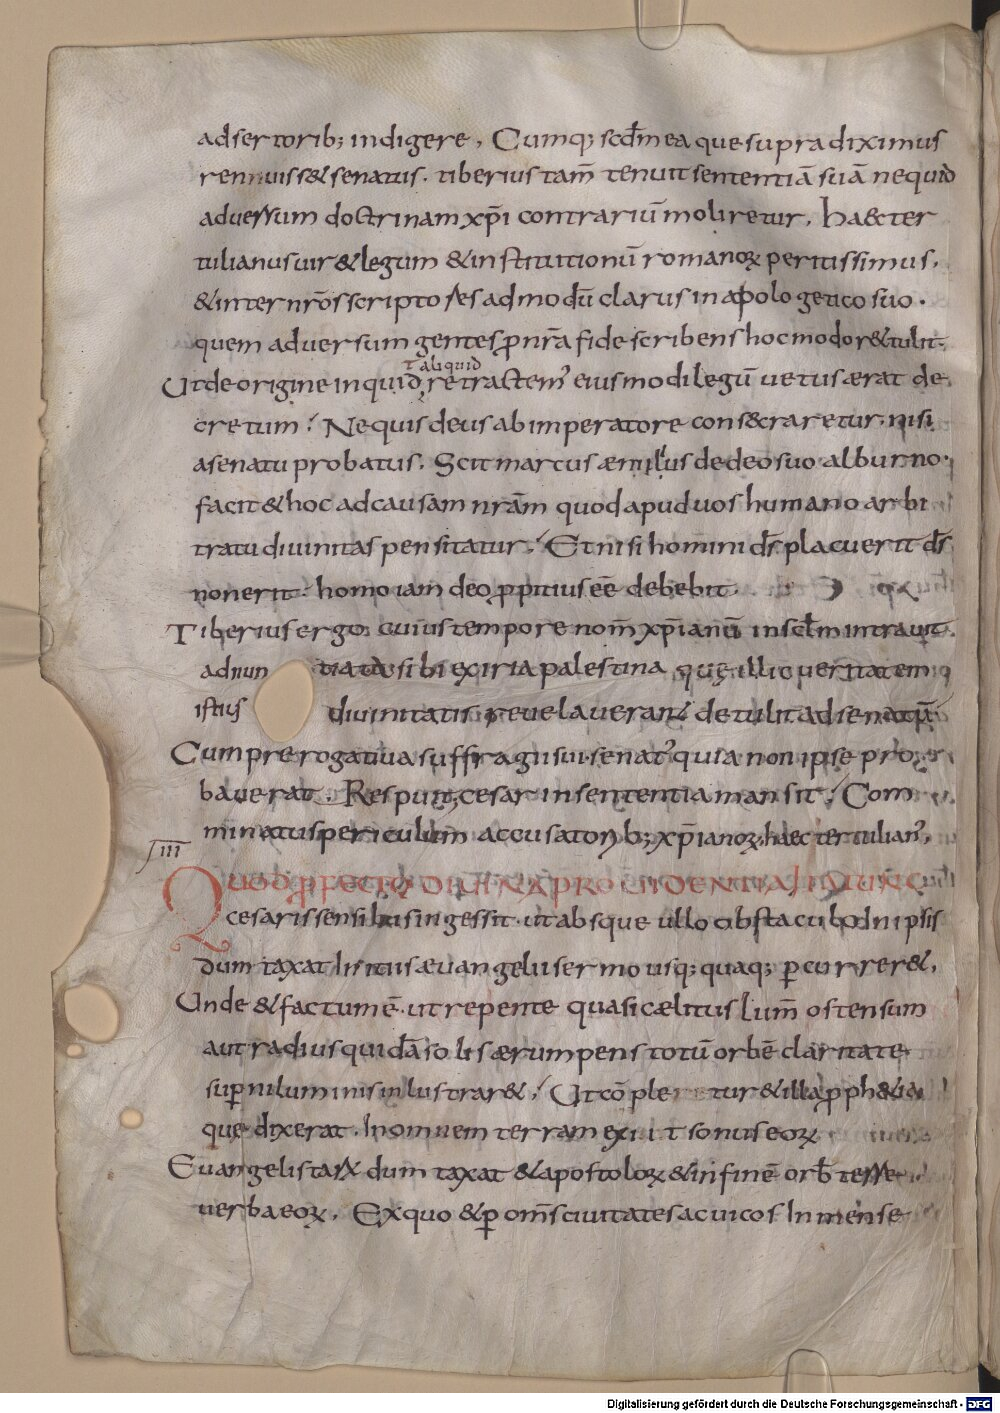 adsertorib; indigere. Cumq; scdm̄ ea que supra diximus
rennuiss& senatus. tiberius tam̄ tenuit sententiā suā nequid
adversum doctrinam xp̄i contrariū moliretur. haec ter
tulianus vir & legum & institutionū romanoꝝ peritissimus.
& inter nr̄os scriptores admodū clarus in apologetico suo.
quem adversum gentes ꝓ nr̄a fide scribens hoc modo r&tulit.
Ut de origine inquid, retractem' eiusmodi legū vetus ærat de
aliquid
cretum. Nequis deus ab imperatore consecraretur. nisi
a senatu probatus. Scit marcus æmilius de deo suo alburno.
facit & hoc ad causam nr̄am quod apud vos humano arbi
tratu divinitas pensitatur. Et nisi homini ds̄ placuerit ds̄
non erit. homo iam deo ꝓpitius eē debebit.
Tiberius ergo. cuius tempore nom̄ xp̄ianū in sclm̄ intravit.
adnun tiata sibi ex iria palestina quę illic veritatem
istius divinitatis revelaverant detulit ad senatū
Cum prerogativa suffragii sui. senat' quia non ipse pro
baverat. Respuit, cesar in sententia mansit. Com
minatus periculum accusatorib; xp̄ianoꝝ. haec tertulian'.
III
Quod ꝓfecto divina providentia
cesaris sensibus ingessit. ut absque ullo obstaculo in ipsis
dum taxat initiis ævangelii sermo usq; quaq; ꝑcurrer&.
Unde & factum ē. ut repente quasi cælitus lum̄ ostensum
aut radius quidā solis ærumpens totū orbē claritate
suꝑni luminis inlustrar&. Ut cōpleretur & illa ꝓph&ia
que dixerat. In omnem terram exiit sonus eoꝝ
Euangelistaꝝ dum taxat & apostoloꝝ & in finē orb̄ terre
verba eoꝝ. Ex quo & ꝑ om̄s civitates ac vicos Inmense
Digitalisierung gefördert durch die Deutsche Forschungsgemeinschaft - DFG